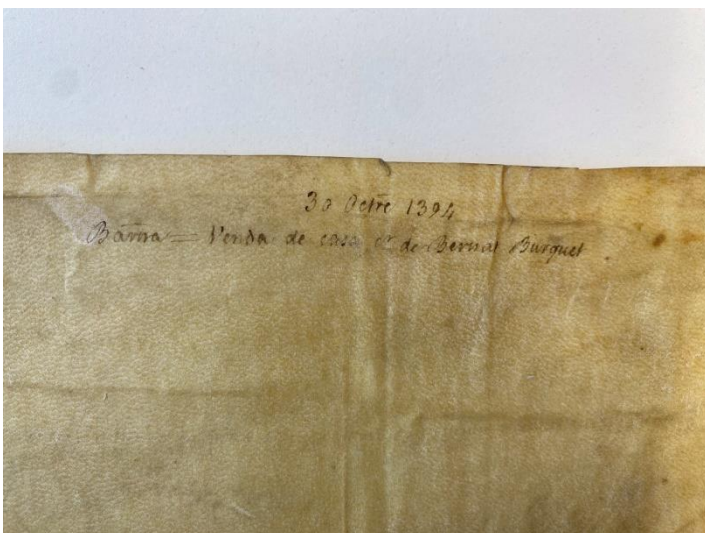 30 Octre 1394
Barna = Venda de casa de Bernat Burguet